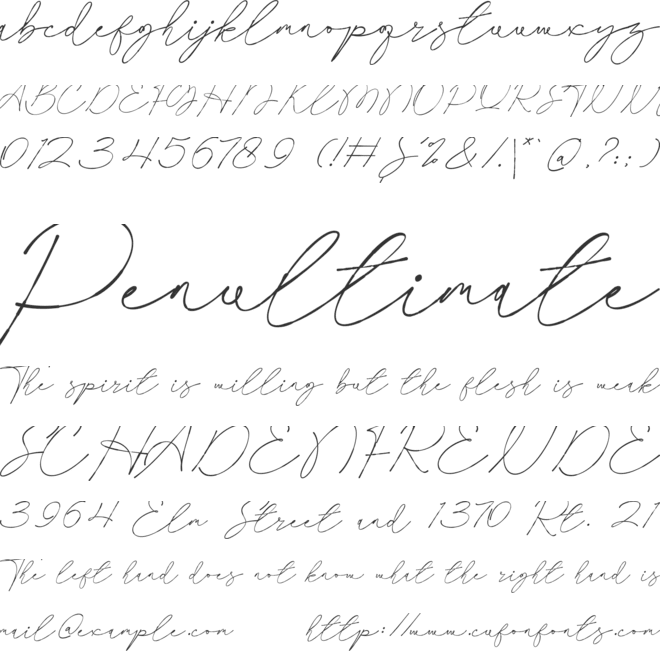 abcdefghijklmnopqrstuvwxyz
ABCDEFGHIJKLMNOPQRSTUV
0123456789 (!#$%&/.|*`@,?:;)
Penultimate
The spirit is willing but the flesh is weak
SCHADENFREUDE
3964 Elm Street and 1370 Rt. 21
The left hand does not know what the right hand is
mail@example.com http://www.cufonfonts.com